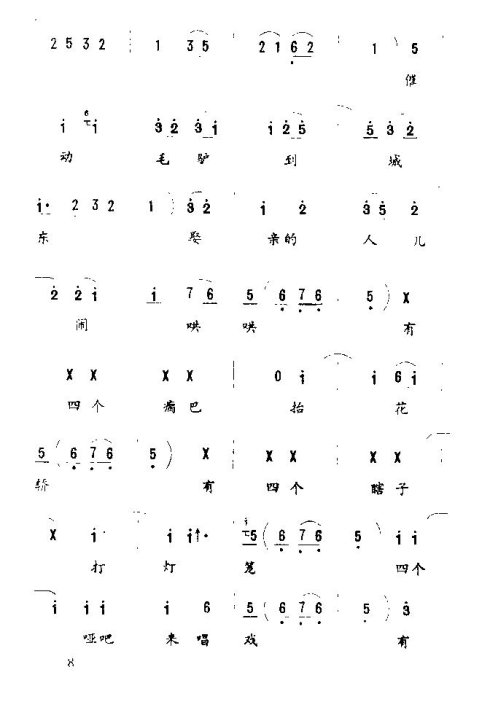 2 5 3 2 1 3 5 2 1 6 2 1 ) 5
催
i i 3 2 3 i i 2 5 5 3 2
动 毛 驴 到 城
i · 2 3 2 1 ) 3 2 i 2 3 5 2
东 娶 亲的 人 儿
2 2 i i 7 6 5 ( 6 7 6 5 ) X
闹 哄 哄 有
X X X X 0 i i 6 i
四 个 瘸 巴 抬 花
5 ( 6 7 6 5 ) X X X X X
轿 有 四 个 瞎 子
X i · i i · 5 ( 6 7 6 5 ) i i
打 灯 笼 四个
i i i i 6 5 ( 6 7 6 5 ) 3
哑吧 来 唱 戏 有
8